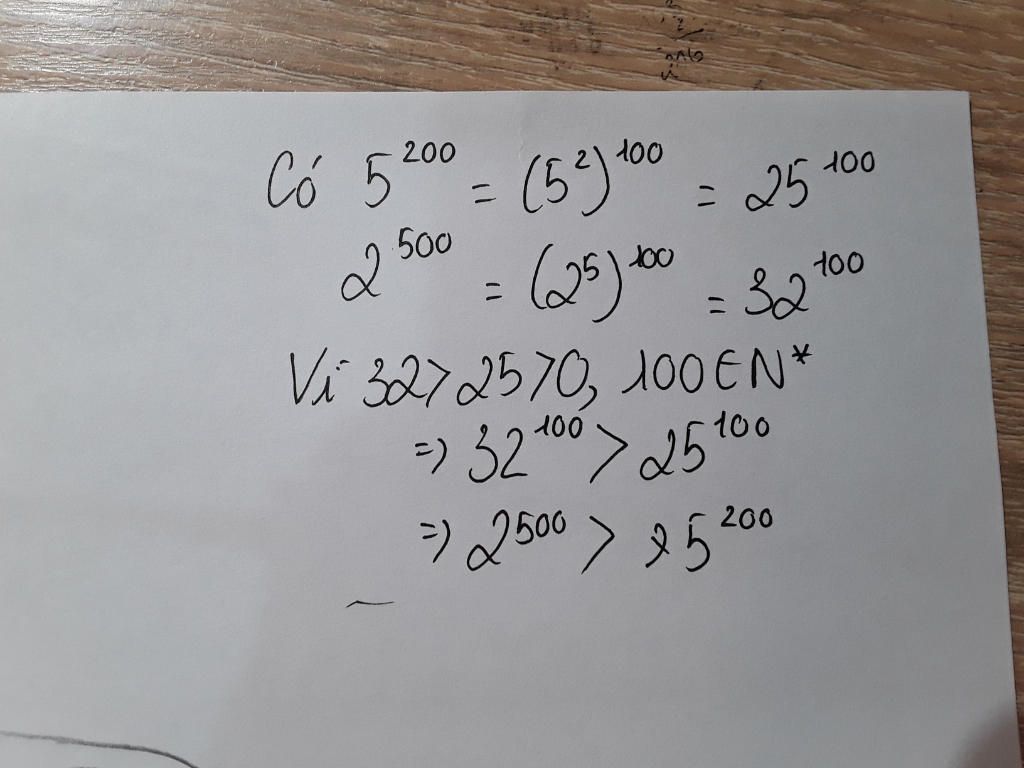 Có 5²⁰⁰ = (5²)¹⁰⁰ = 25¹⁰⁰
2⁵⁰⁰ = (2⁵)¹⁰⁰ = 32¹⁰⁰
Vì 32>25>0, 100 ∈ N*
=> 32¹⁰⁰ > 25¹⁰⁰
=> 2⁵⁰⁰ > 5²⁰⁰